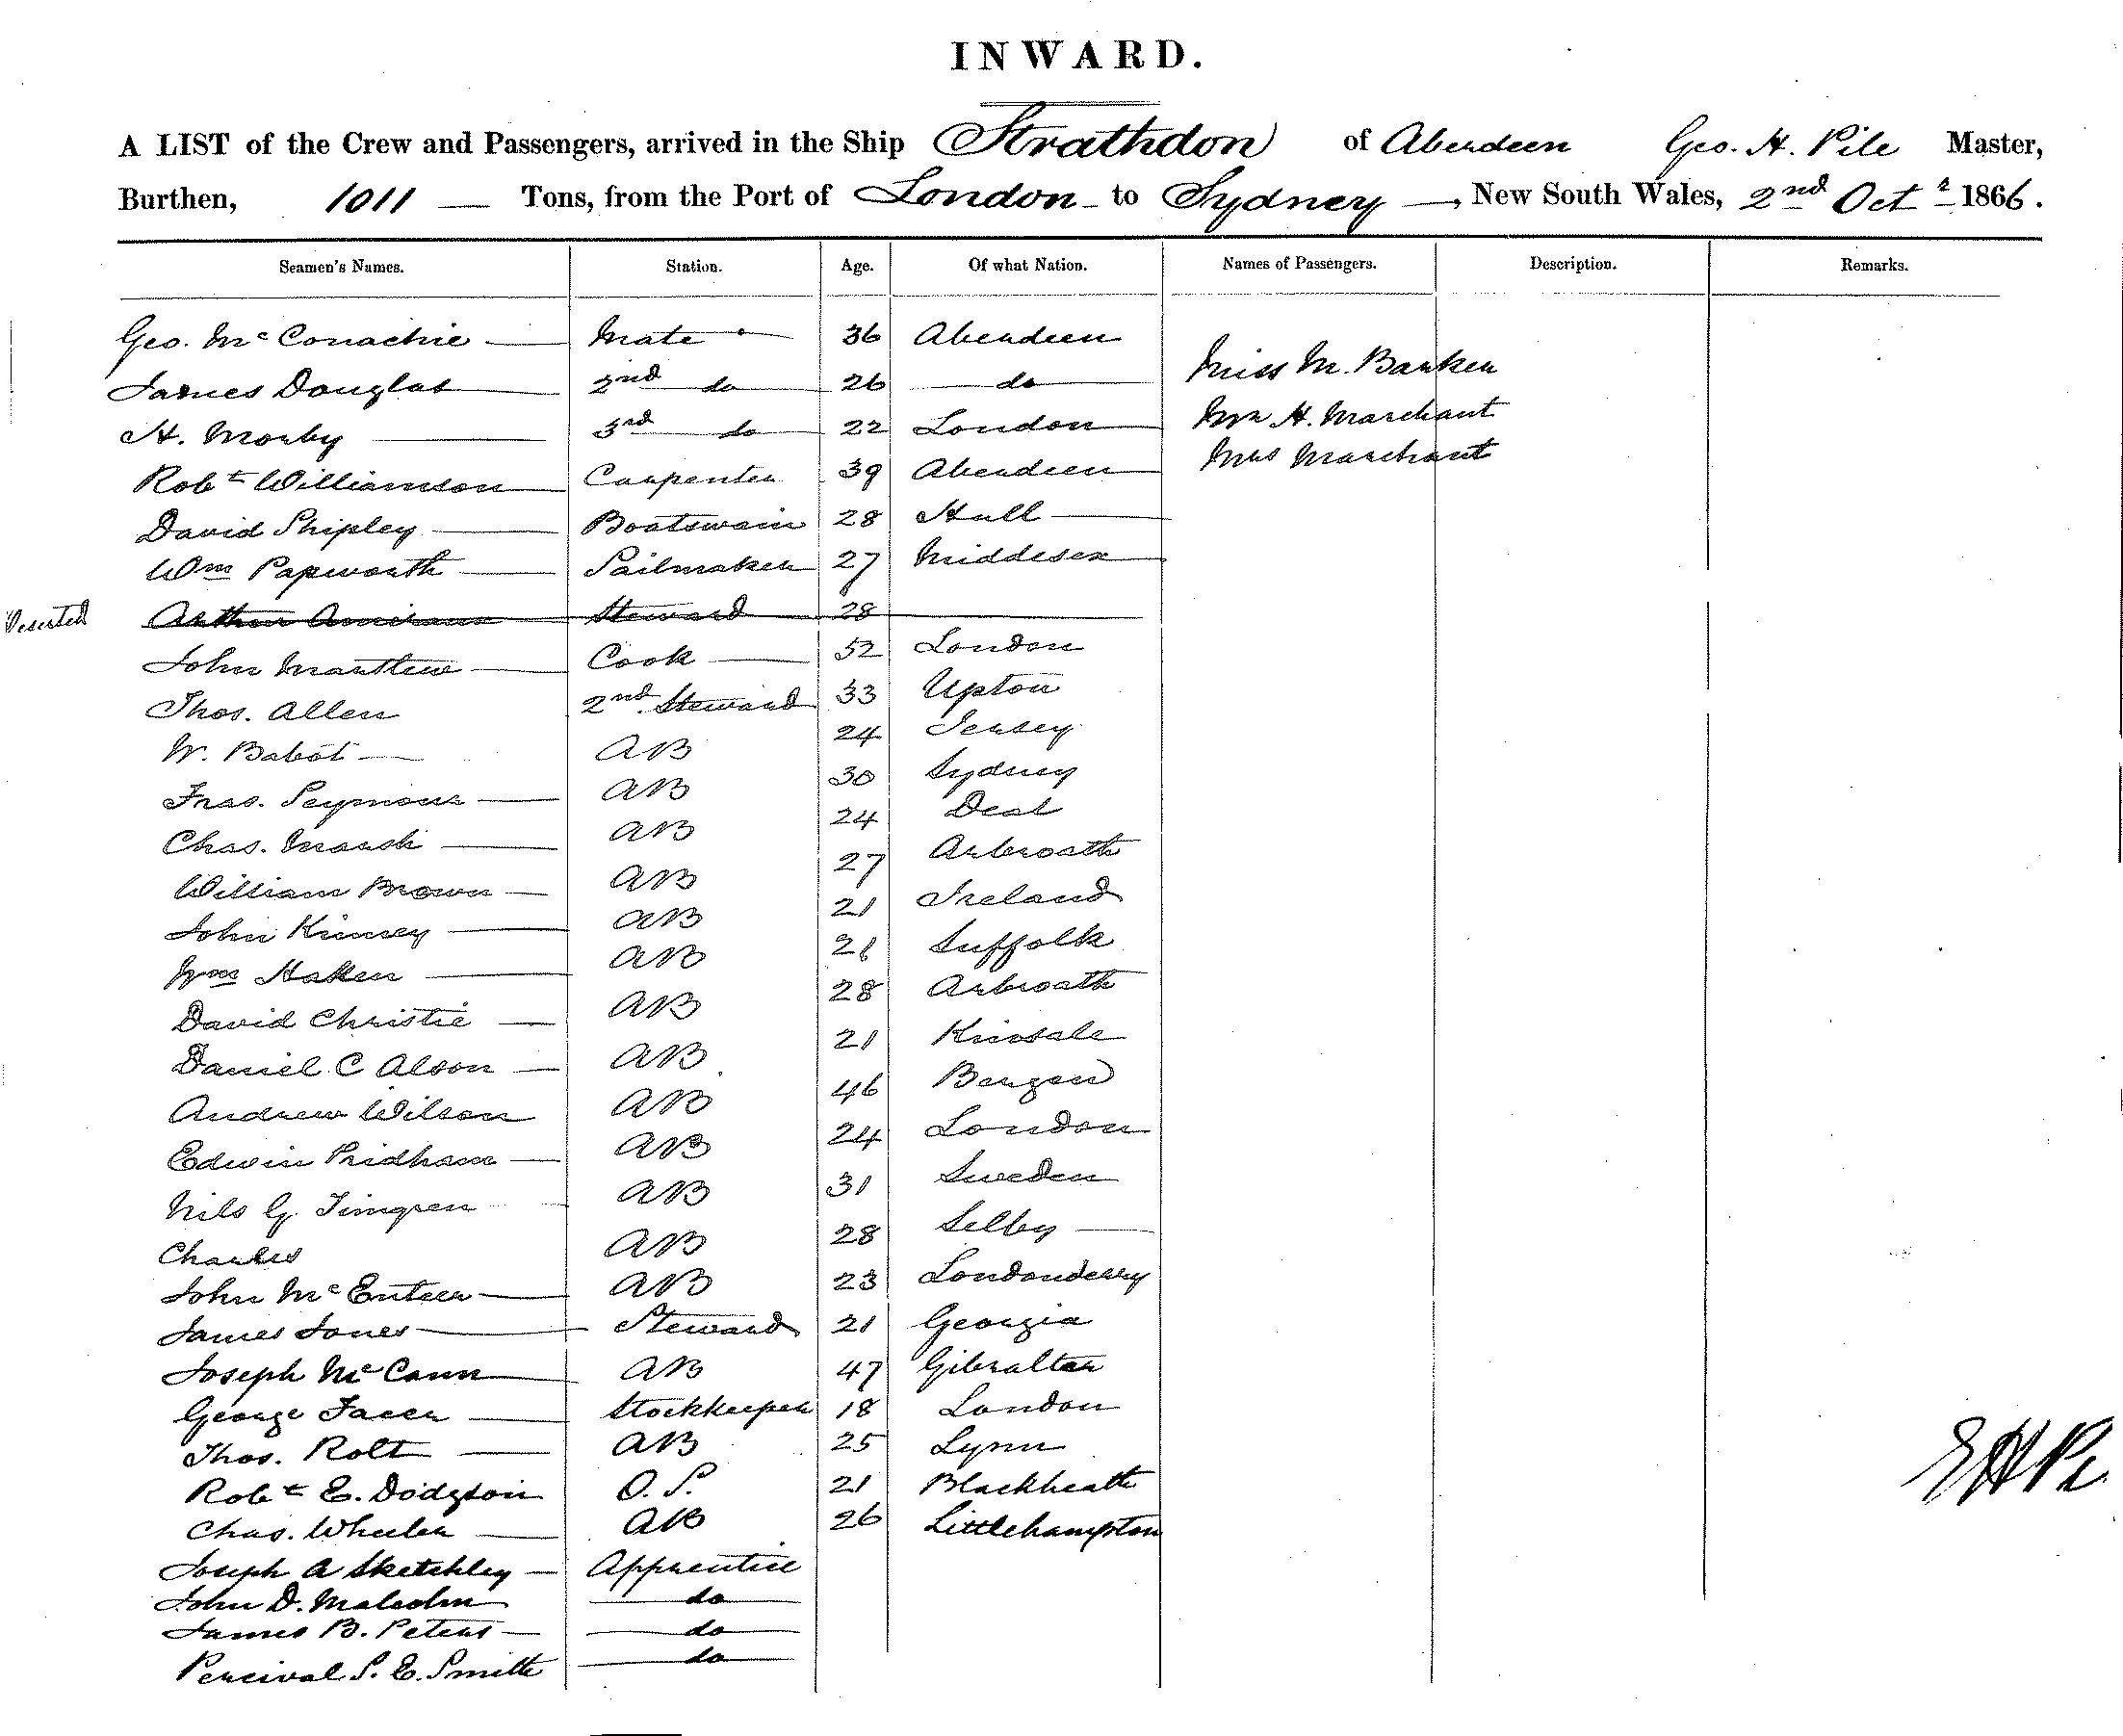 INWARD.
A LIST of the Crew and Passengers, arrived in the Ship Strathdon of Aberdeen Geo. H. Pile Master,
Burthen, 1011 — Tons, from the Port of London to Sydney —, New South Wales, 2nd Octr 1866.
Seamen's Names. Station. Age. Of what Nation. Names of Passengers. Description. Remarks.
Geo. McConachie Mate 36 Aberdeen
Miss M. Banken
James Douglas 2nd do 26 do
H. Morby 3rd do 22 London Mr H. Marchant
Robt Williamson Carpenter 39 Aberdeen Mrs Marchant
David Shipley Boatswain 28 Hull
Wm Papworth Sailmaker 27 Middlesex
Deserted Arthur Steward 28
John Cook 52 London
Thos. Allen 2nd Steward 33 Upton
W. Babot AB 24 Jersey
Fras. Seymour AB 30 Sydney
Chas. Marsh AB 24 Deal
William Brown AB 27 Arbroath
John Kinsey AB 21 Ireland
Wm Haken AB 21 Suffolk
David Christie AB 28 Arbroath
Daniel C Alson AB 21 Kinsale
Andrew Wilson AB 46 Bergen
Edwin Pridham AB 24 London
Nils G. Timgren AB 31 Sweden
Charles AB 28 Selby
John McEnteer AB 23 Londonderry
James Jones Steward 21 Georgia
Joseph McCann AB 47 Gibraltar
George Facer Stockkeeper 18 London
Thos. Rolt AB 25 Lynn
Robt E. Dodgson O.S. 21 Blackheath
Chas. Wheeler AB 26 Littlehampton
Joseph A Sketchley Apprentice
John D. Malcolm do
James B. Peters do
Percival S. E. Smith do